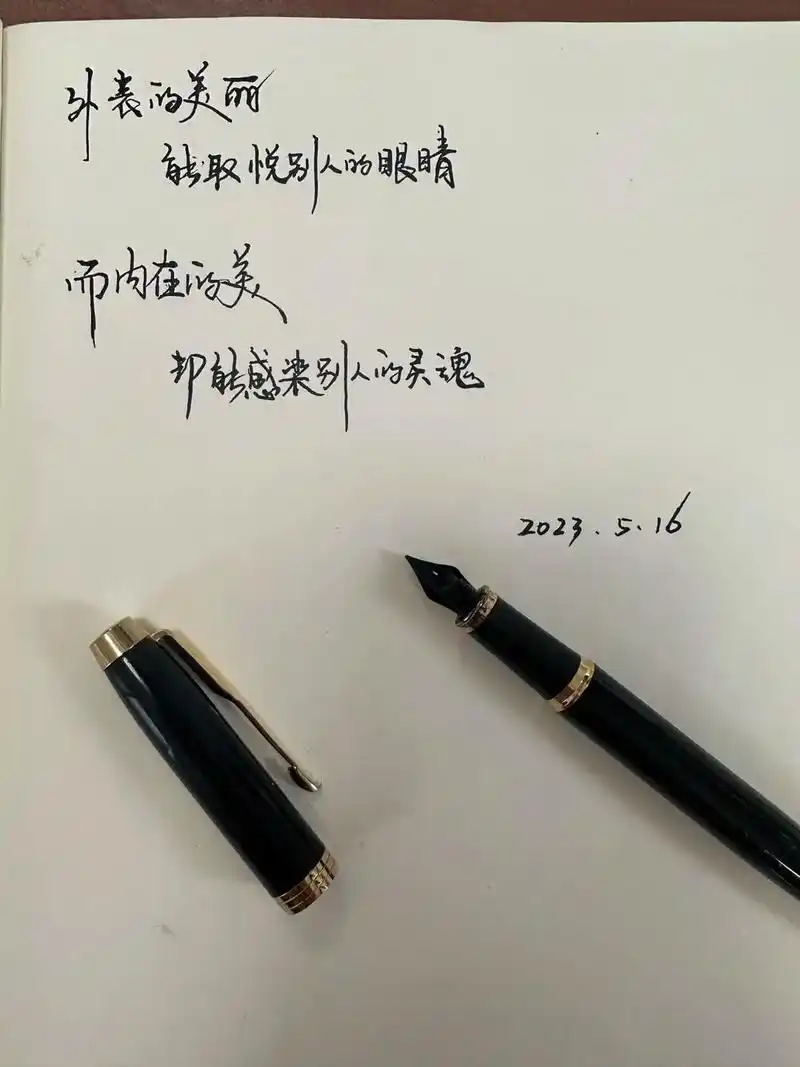 外表的美丽
能取悦别人的眼睛
而内在的美
却能感染别人的灵魂
2023.5.16